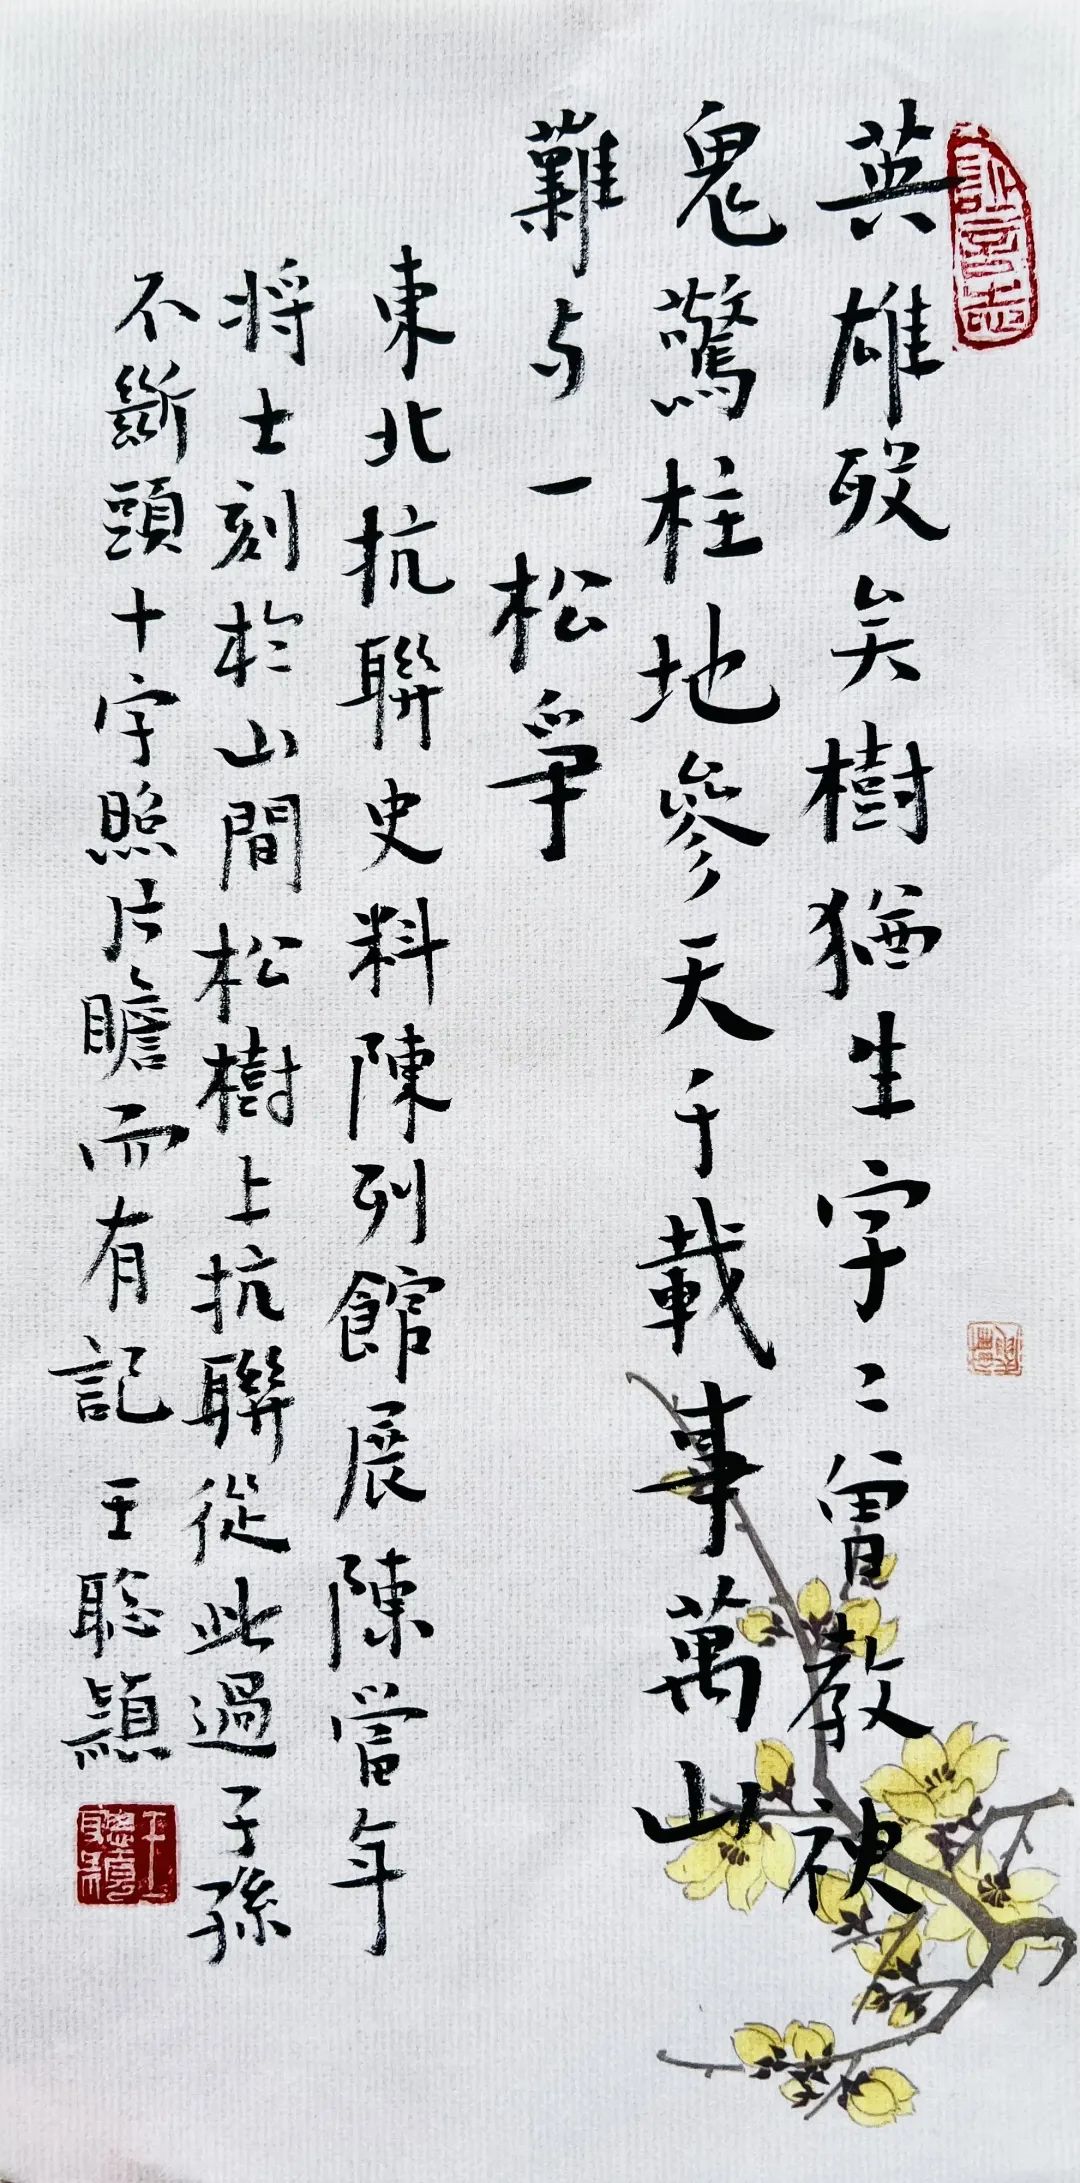 詩言志
英雄歿矣樹猶生字〻曾教神
鬼驚柱地參天千載事萬山
難与一松爭
東北抗聯史料陳列館展陳當年
将士刻於山間松樹上抗聯從此過子孫
不斷頭十字照片瞻而有記 王聰穎
王聰穎